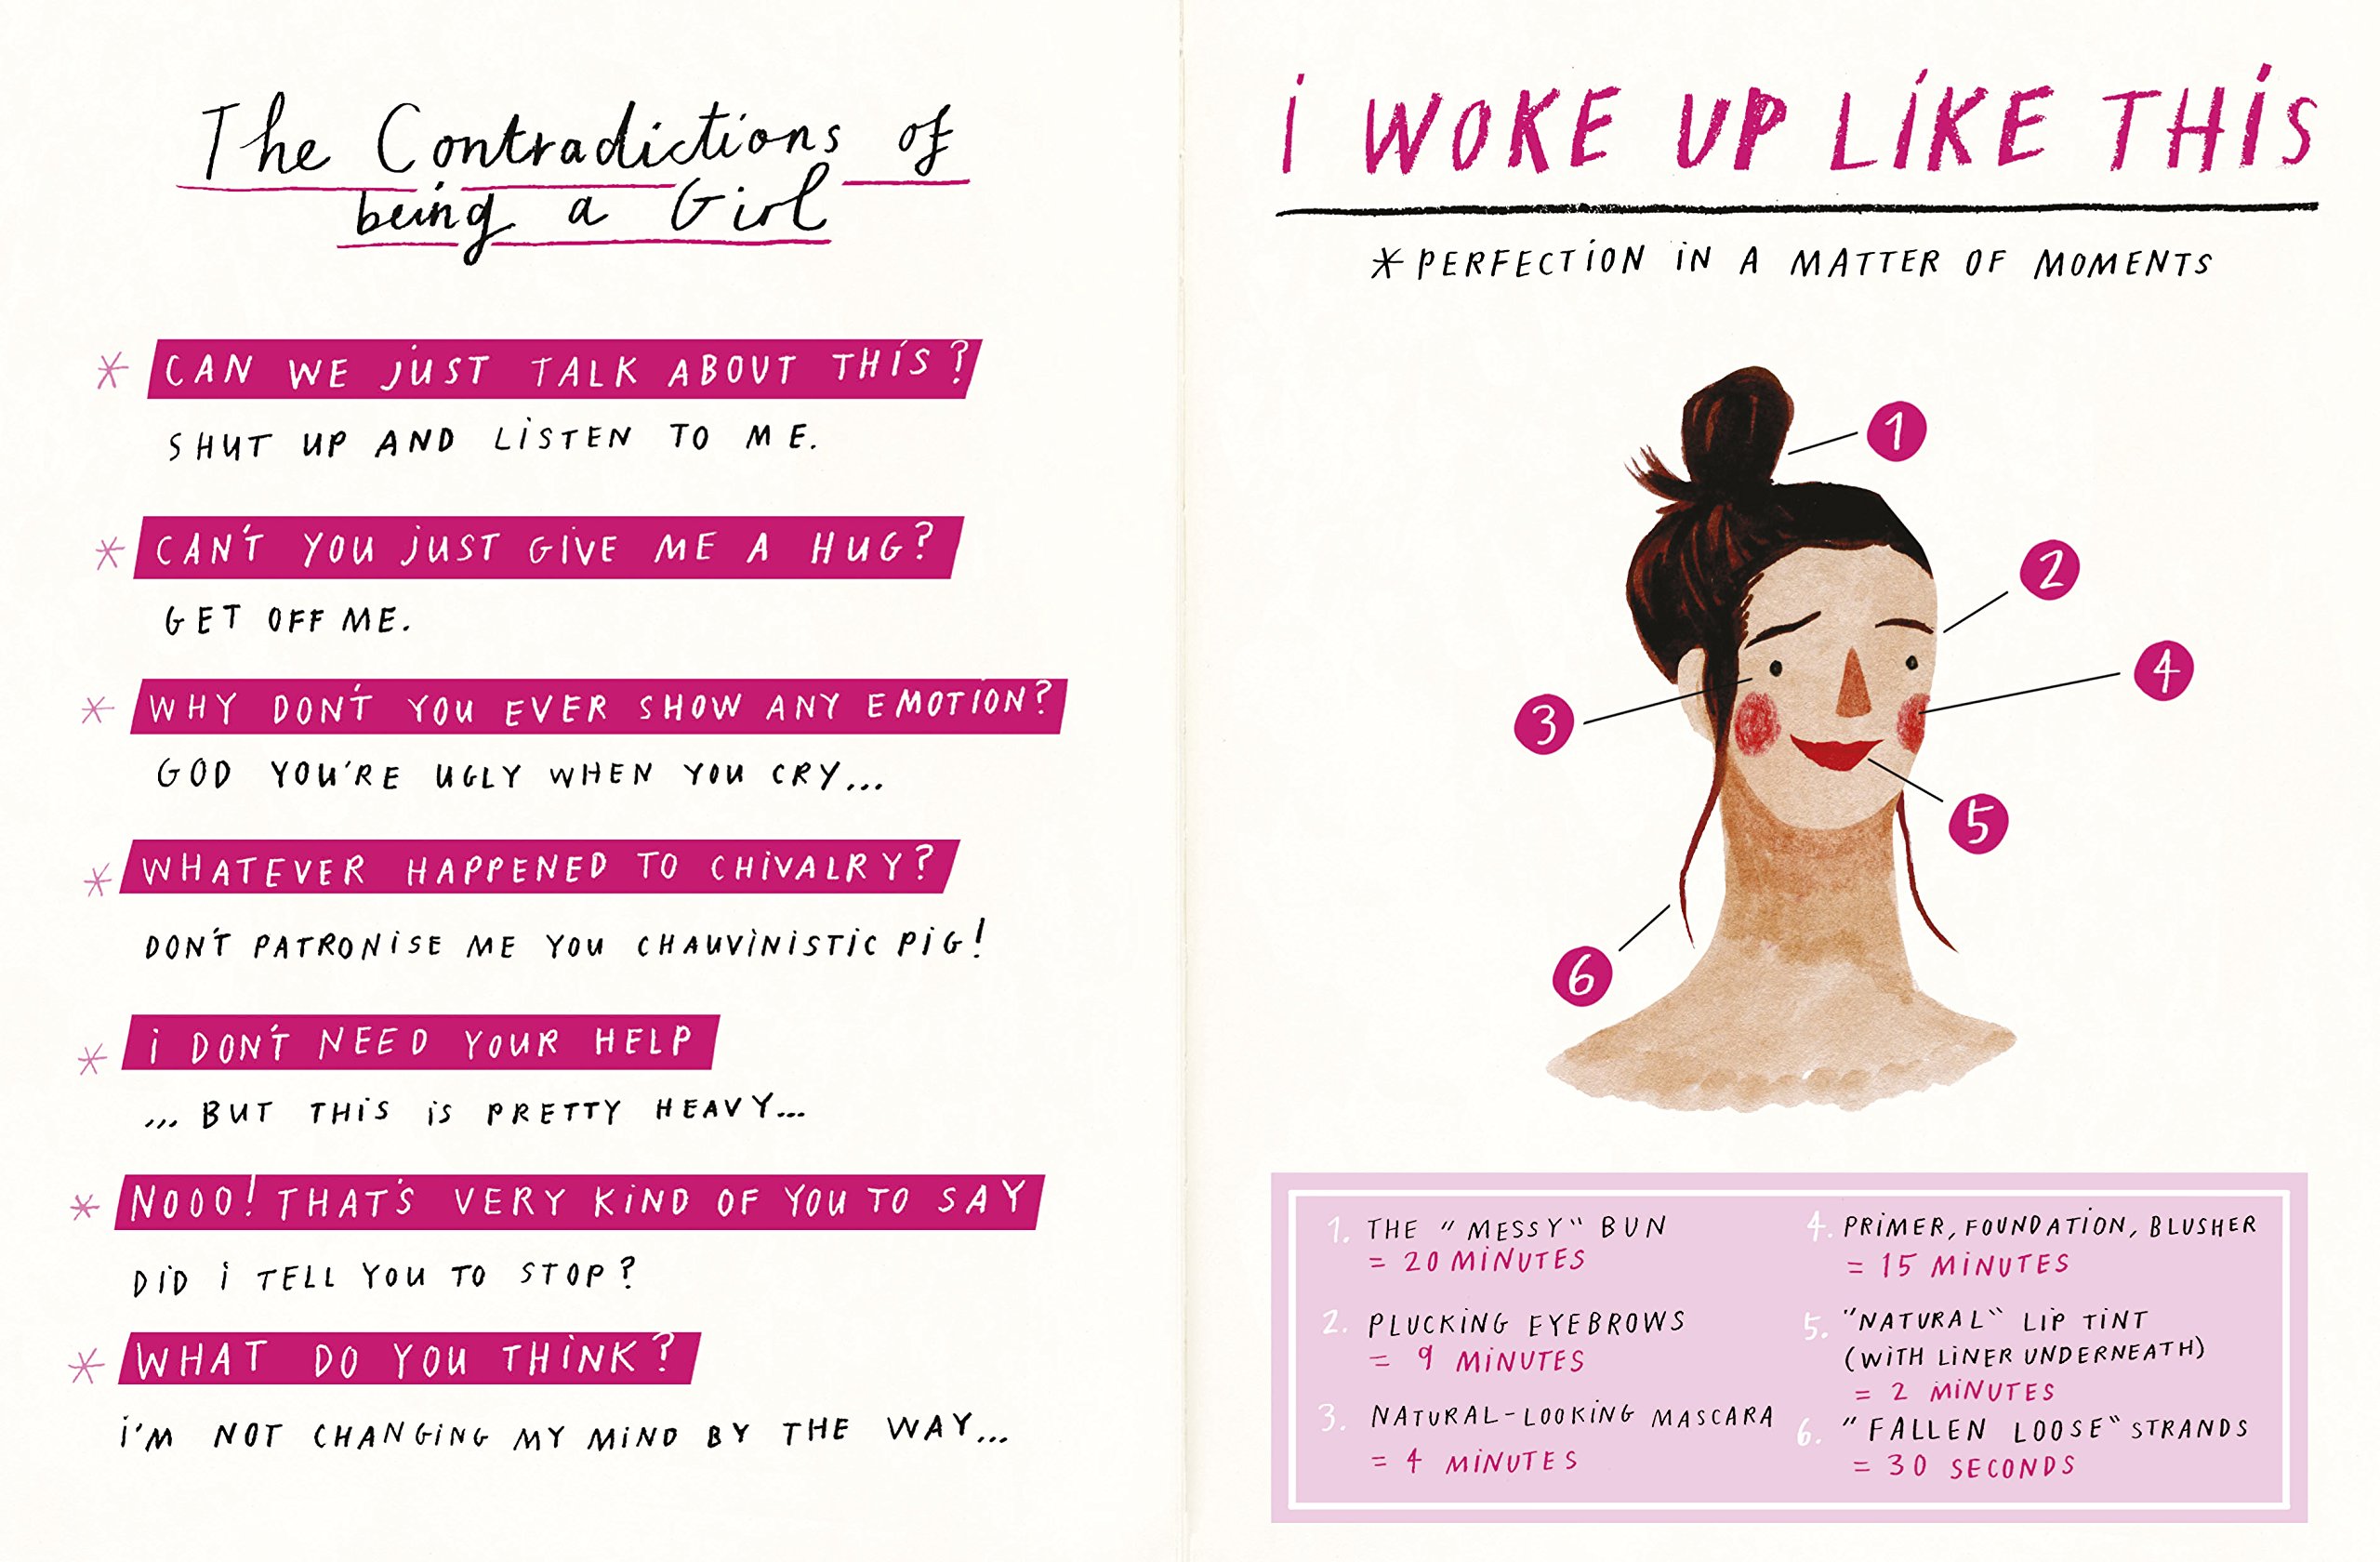 The Contradictions of
being a Girl
* CAN WE JUST TALK ABOUT THIS?
SHUT UP AND LISTEN TO ME.
* CAN'T YOU JUST GIVE ME A HUG?
GET OFF ME.
* WHY DON'T YOU EVER SHOW ANY EMOTION?
GOD YOU'RE UGLY WHEN YOU CRY...
* WHATEVER HAPPENED TO CHIVALRY?
DON'T PATRONISE ME YOU CHAUVINISTIC PIG!
* I DON'T NEED YOUR HELP
... BUT THIS IS PRETTY HEAVY...
* NOOO! THAT'S VERY KIND OF YOU TO SAY
DID I TELL YOU TO STOP?
* WHAT DO YOU THINK?
I'M NOT CHANGING MY MIND BY THE WAY...
I WOKE UP LIKE THIS
* PERFECTION IN A MATTER OF MOMENTS
1
2
3
4
5
6
1. THE "MESSY" BUN
= 20 MINUTES
2. PLUCKING EYEBROWS
= 9 MINUTES
3. NATURAL-LOOKING MASCARA
= 4 MINUTES
4. PRIMER, FOUNDATION, BLUSHER
= 15 MINUTES
5. "NATURAL" LIP TINT
(WITH LINER UNDERNEATH)
= 2 MINUTES
6. "FALLEN LOOSE" STRANDS
= 30 SECONDS